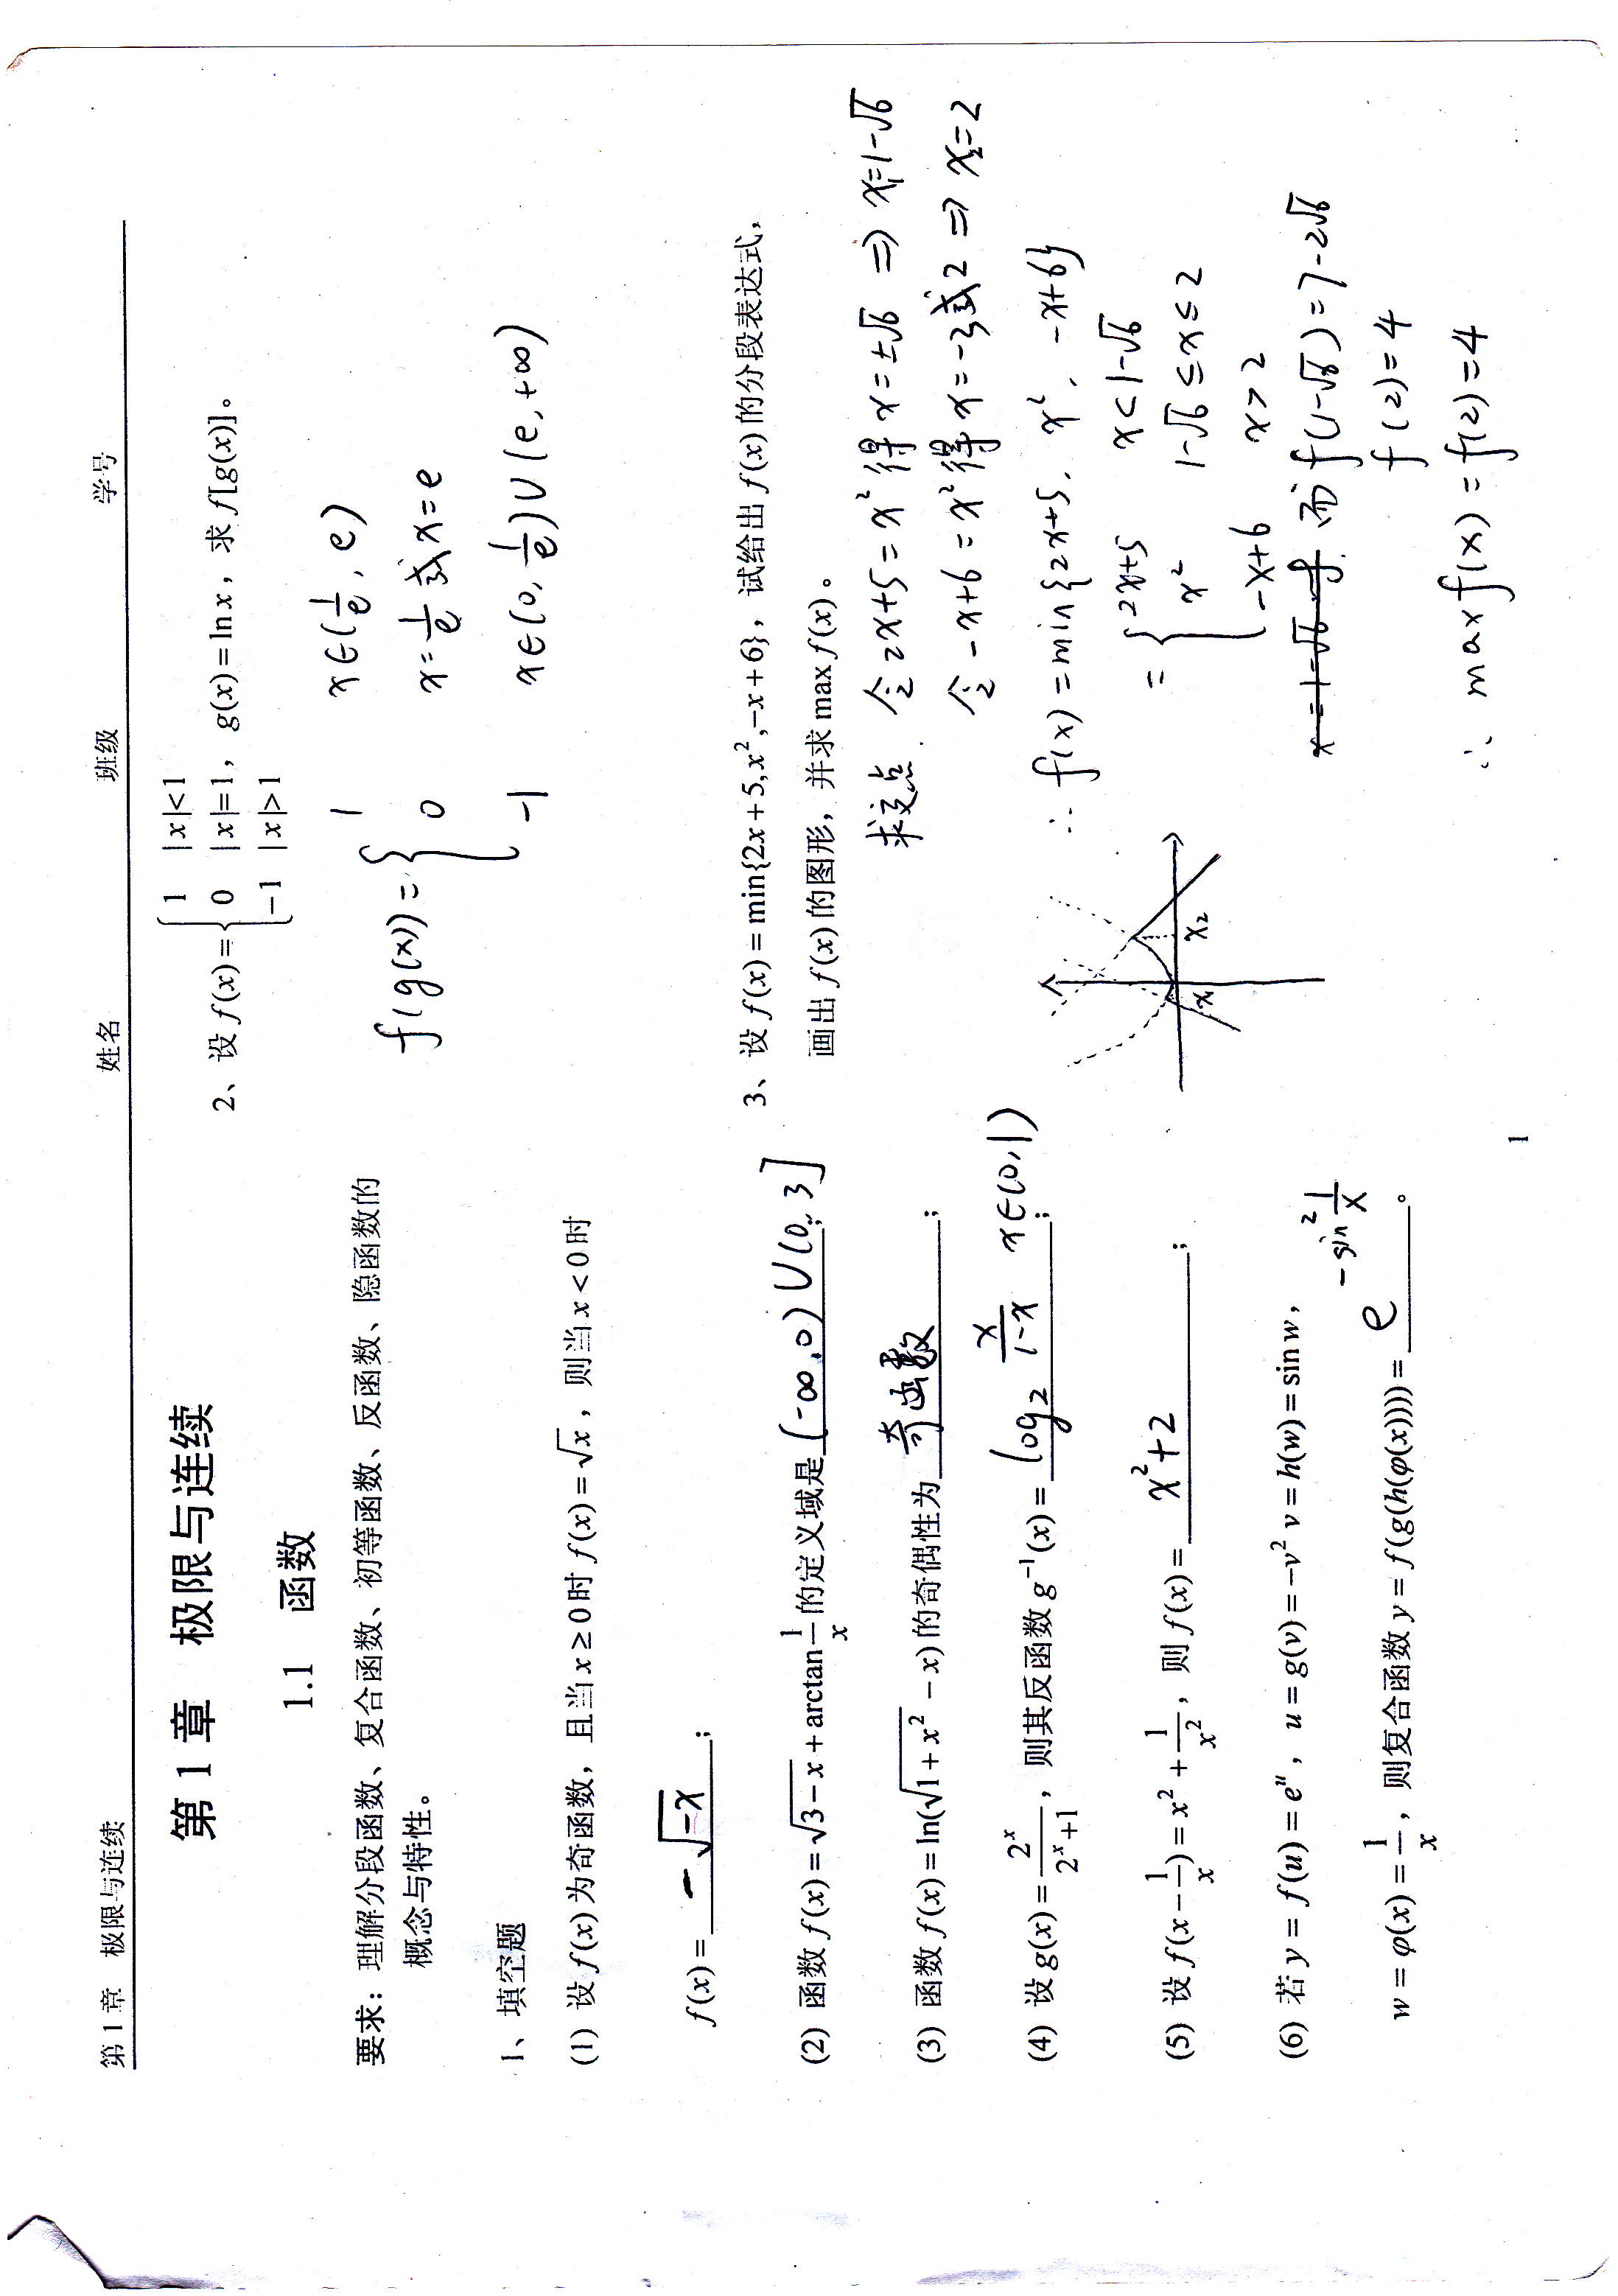 第1章 极限与连续
姓名 班级 学号
第 1 章 极限与连续
1.1 函数
要求：理解分段函数、复合函数、初等函数、反函数、隐函数的
概念与特性。
1、填空题
(1) 设 f(x) 为奇函数，且当 x ≥ 0 时 f(x) = √x，则当 x < 0 时
f(x) = -√-x ;
(2) 函数 f(x) = √(3-x) + arctan 1/x 的定义域是 (-∞,0)∪(0,3] ;
(3) 函数 f(x) = ln(√(1+x²) - x) 的奇偶性为 奇函数 ;
(4) 设 g(x) = 2ˣ/(2ˣ+1)，则其反函数 g⁻¹(x) = log₂ x/(1-x) x∈(0,1) ;
(5) 设 f(x - 1/x) = x² + 1/x²，则 f(x) = x²+2 ;
(6) 若 y = f(u) = eᵘ，u = g(v) = -v² v = h(w) = sin w，
w = φ(x) = 1/x，则复合函数 y = f(g(h(φ(x)))) = e^(-sin² 1/x) 。
2、设 f(x) = { 1 |x|<1
0 |x|=1，g(x) = ln x，求 f[g(x)]。
-1 |x|>1
f(g(x)) = { 1 x∈(1/e, e)
0 x=1/e 或 x=e
-1 x∈(0, 1/e)∪(e,+∞)
3、设 f(x) = min{2x+5, x², -x+6}，试给出 f(x) 的分段表达式，
画出 f(x) 的图形，并求 max f(x)。
求交点. 令 2x+5=x² 得 x=±√6 ⇒ x₁=1-√6
令 -x+6=x² 得 x=-3或2 ⇒ x₂=2
∴ f(x)=min{2x+5, x², -x+6}
= { 2x+5 x<1-√6
x² 1-√6≤x≤2
-x+6 x>2
x₁ x₂
x=1-√6 f 而 f(1-√6)=7-2√6
f(2)=4
∴ max f(x)=f(2)=4
1